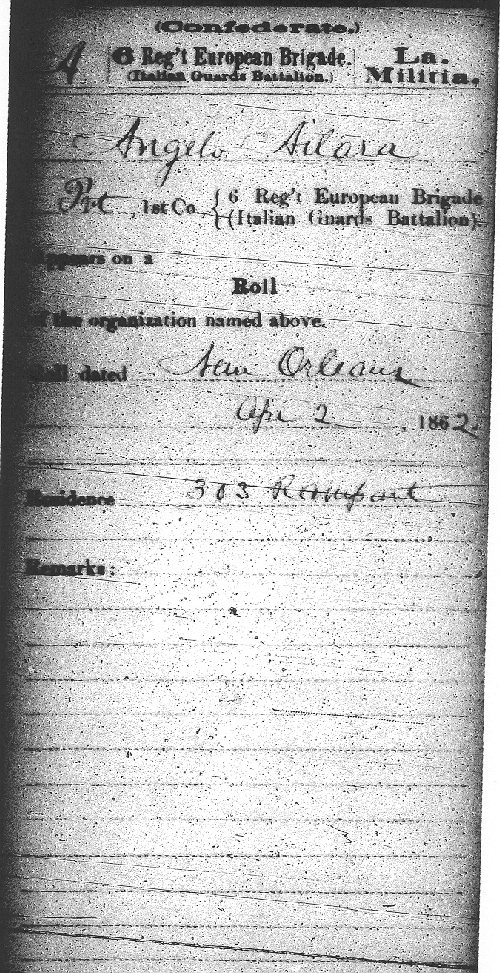 (Confederate.)
A | 6 Reg't European Brigade. (Italian Guards Battalion.) | La. Militia.
Angelo Ailara
Pvt, 1st Co. { 6 Reg't European Brigade
(Italian Guards Battalion)
Appears on a
Roll
of the organization named above.
Roll dated New Orleans
Apr 2, 1862.
Residence 303 Rampart
Remarks: